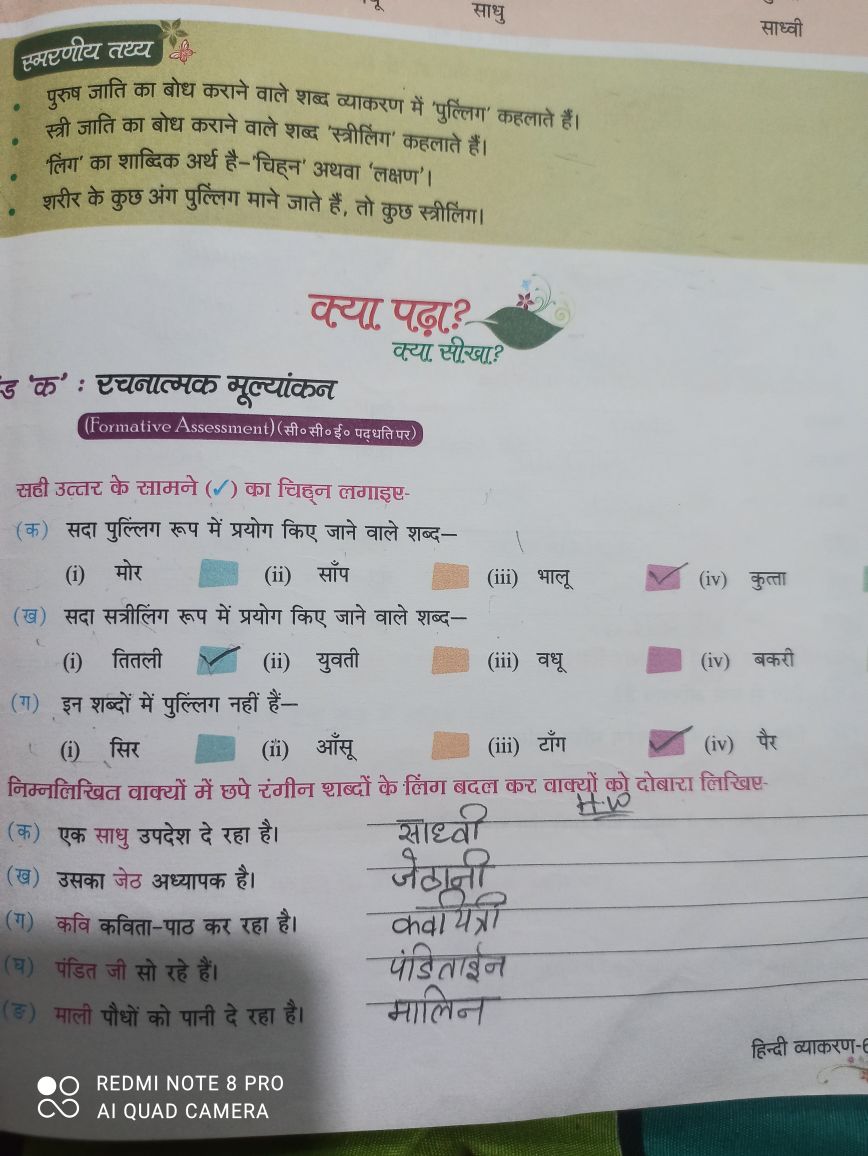 साधु
साध्वी
स्मरणीय तथ्य
• पुरुष जाति का बोध कराने वाले शब्द व्याकरण में ‘पुल्लिंग’ कहलाते हैं।
• स्त्री जाति का बोध कराने वाले शब्द ‘स्त्रीलिंग’ कहलाते हैं।
• ‘लिंग’ का शाब्दिक अर्थ है–‘चिह्न’ अथवा ‘लक्षण’।
• शरीर के कुछ अंग पुल्लिंग माने जाते हैं, तो कुछ स्त्रीलिंग।
क्या पढ़ा?
क्या सीखा?
‘क’ : रचनात्मक मूल्यांकन
(Formative Assessment) (सी॰सी॰ई॰ पद्धति पर)
सही उत्तर के सामने (✓) का चिह्न लगाइए-
(क) सदा पुल्लिंग रूप में प्रयोग किए जाने वाले शब्द—
(i) मोर (ii) साँप (iii) भालू ✓ (iv) कुत्ता
(ख) सदा सत्रीलिंग रूप में प्रयोग किए जाने वाले शब्द—
(i) तितली ✓ (ii) युवती (iii) वधू (iv) बकरी
(ग) इन शब्दों में पुल्लिंग नहीं हैं—
(i) सिर (ii) आँसू (iii) टाँग ✓ (iv) पैर
निम्नलिखित वाक्यों में छपे रंगीन शब्दों के लिंग बदल कर वाक्यों को दोबारा लिखिए-
H.W
(क) एक साधु उपदेश दे रहा है। साध्वी
(ख) उसका जेठ अध्यापक है। जेठानी
(ग) कवि कविता-पाठ कर रहा है। कवयित्री
(घ) पंडित जी सो रहे हैं। पंडिताईन
(ङ) माली पौधों को पानी दे रहा है। मालिन
हिन्दी व्याकरण-6
REDMI NOTE 8 PRO
AI QUAD CAMERA